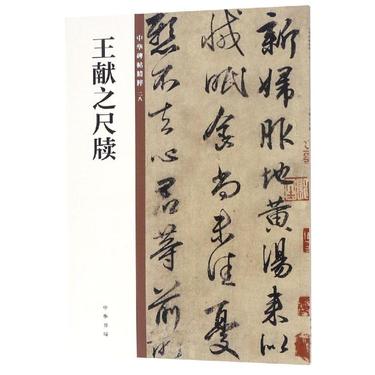 王献之尺牍
中华碑帖精粹
中华书局
新婦服地黃湯來似
減眠食尚未佳憂
懸不去心君等前